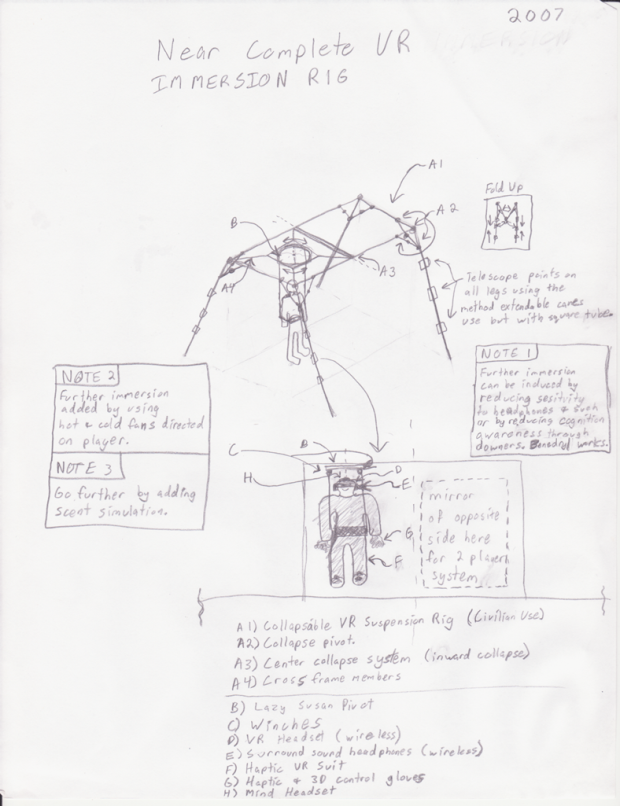 2007
Near Complete VR
IMMERSION RIG
A1
Fold Up
A2
B
A3
A4
Telescope points on
all legs using the
method extendable canes
use but with square tube.
NOTE 2
Further immersion
added by using
hot & cold fans directed
on player.
NOTE 3
Go further by adding
scent simulation.
NOTE 1
Further immersion
can be induced by
reducing sesitivity
to headphones & such
or by reducing cognition
awareness through
downers. works.
B
C
D
H
E
G
F
mirror
of opposite
side here
for 2 player
system
A1) Collapsable VR Suspension Rig (Civilian Use)
A2) Collapse pivot.
A3) Center collapse system (inward collapse)
A4) Cross frame members
B) Lazy Susan Pivot
C) Winches
D) VR Headset (wireless)
E) Surround sound headphones (wireless)
F) Haptic VR Suit
G) Haptic & 3D control gloves
H) Mind Headset